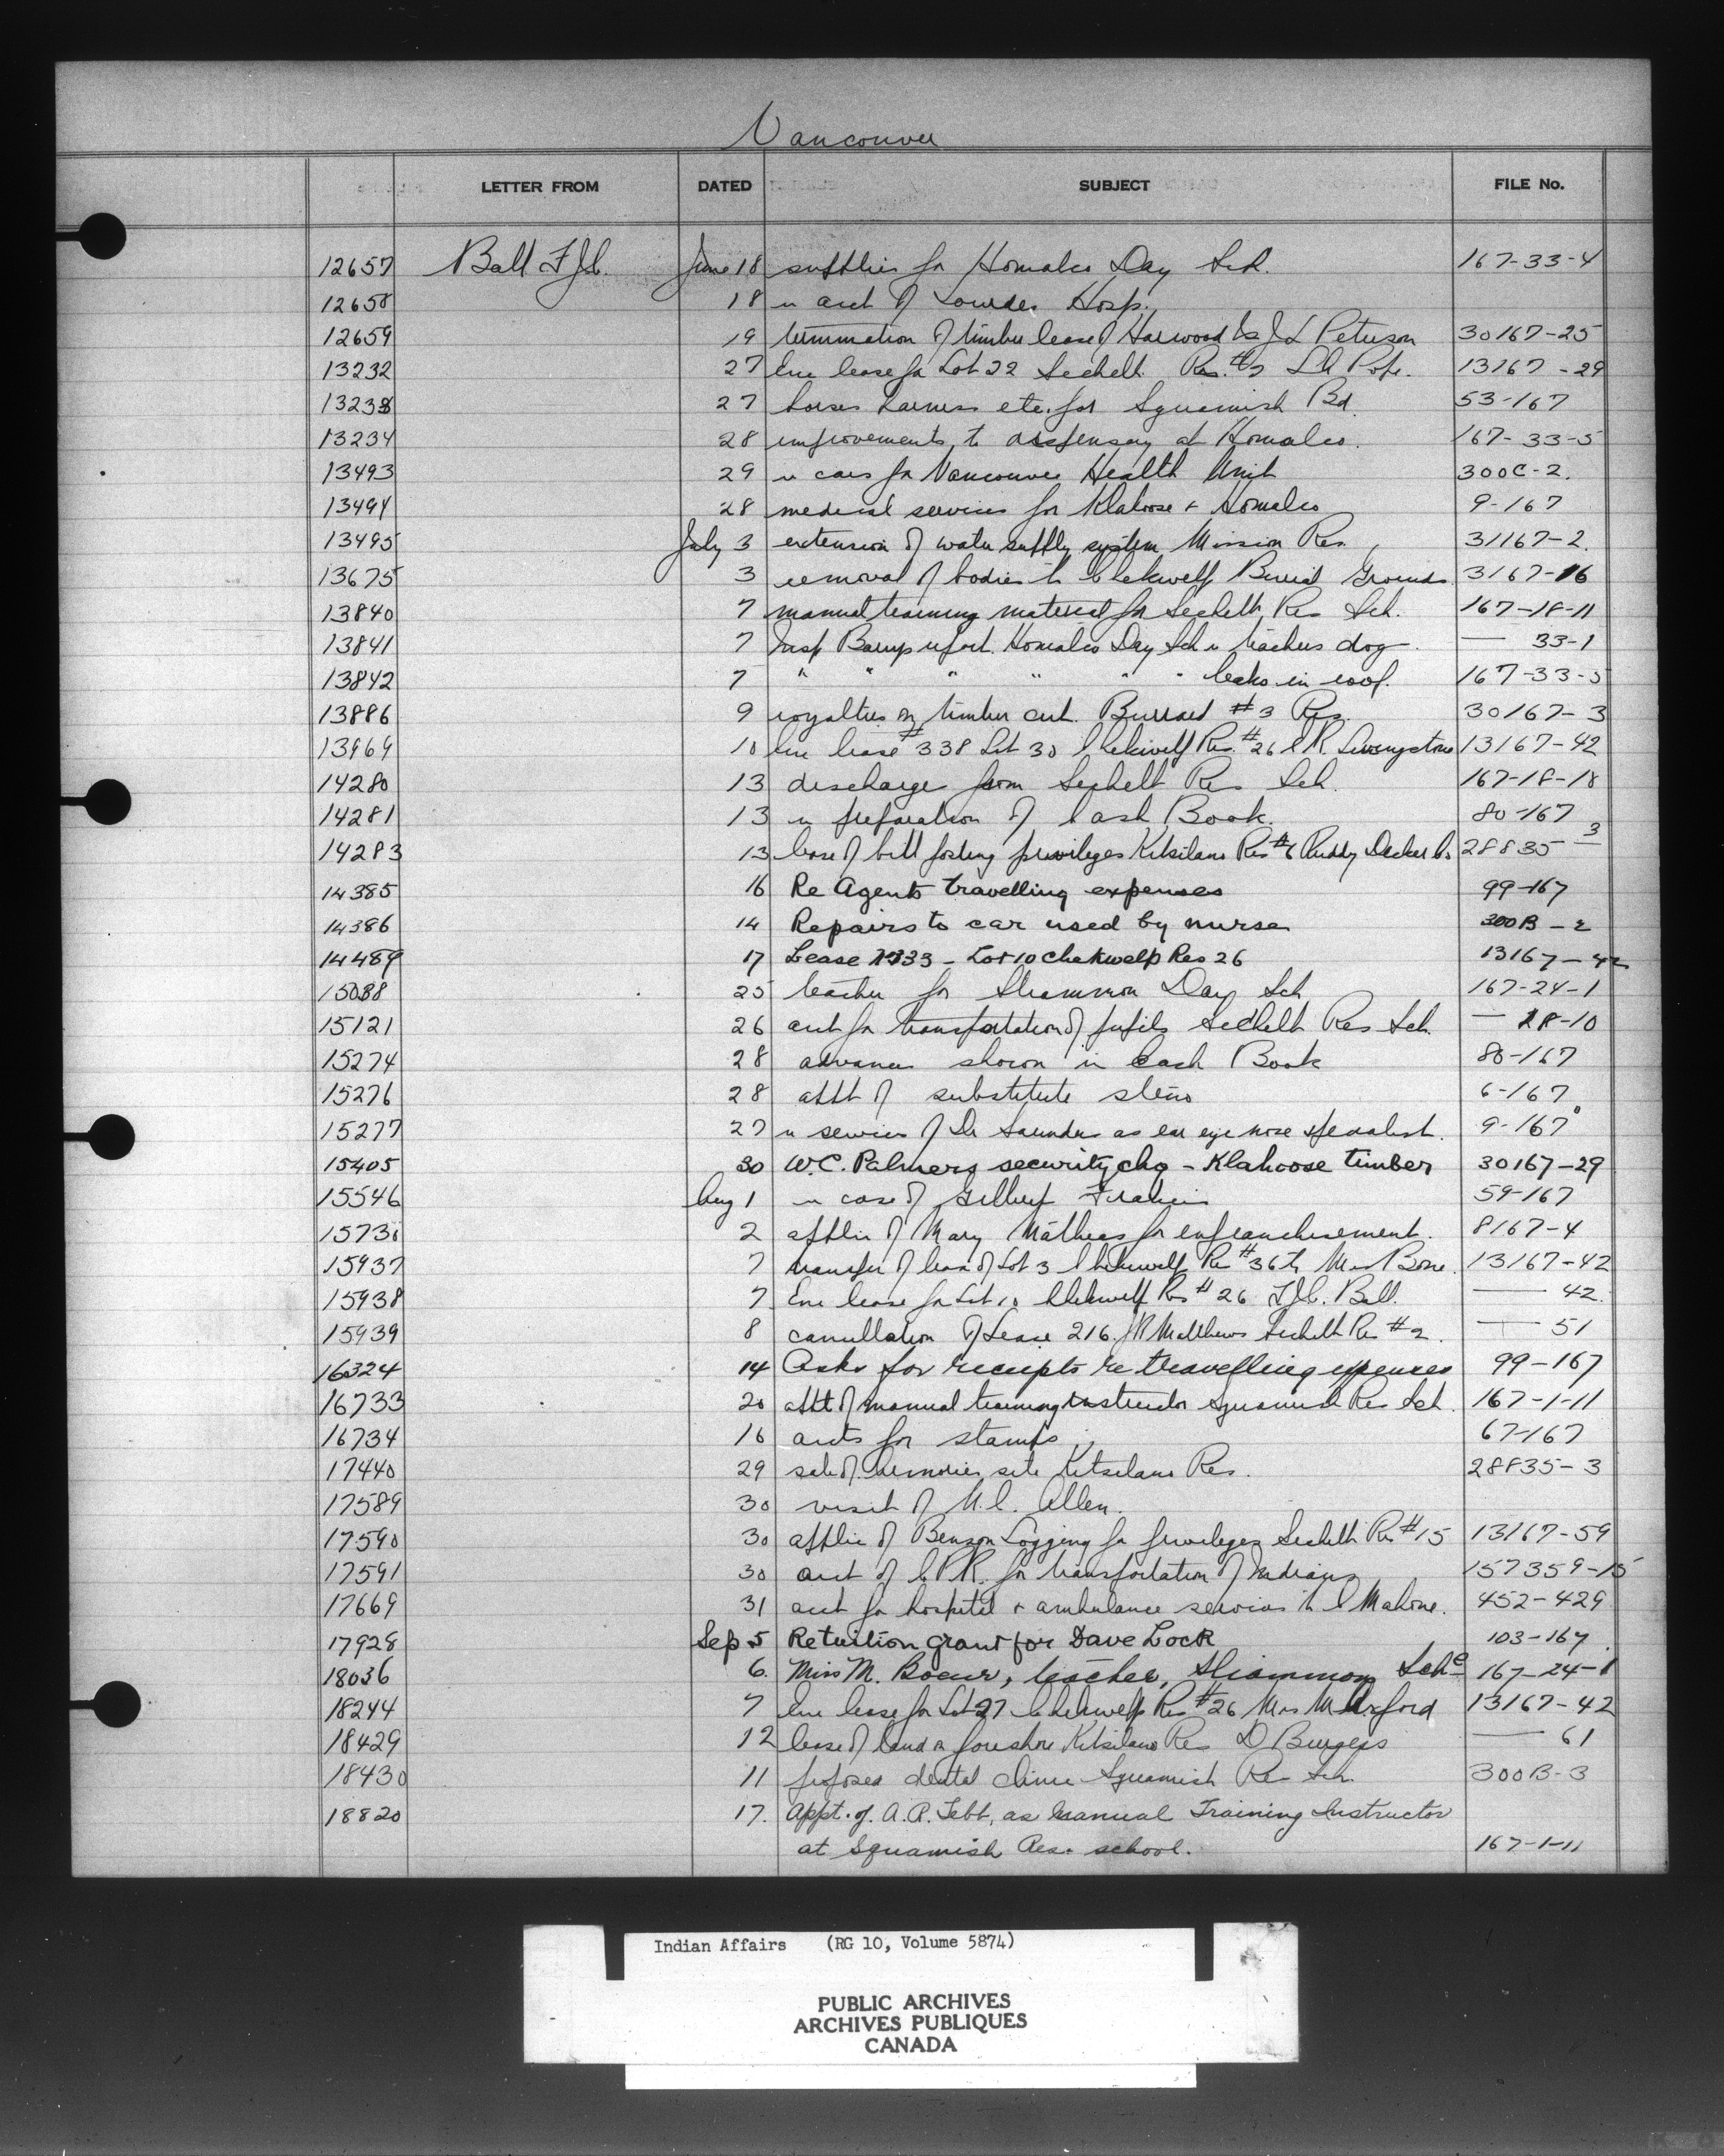 Vancouver
LETTER FROM DATED SUBJECT FILE No.
12657 Ball F.J.C. June 18 supplies for Homalco Day Sch. 167-33-4
12658 18 re acct of Lourdes Hosp.
12659 19 termination of timber lease of Harwood Is J L Peterson 30167-25
13232 27 Enc lease for Lot 22 Sechelt Res. #2 13167-29
13233 27 horses harness etc. for Squamish Bd. 53-167
13234 28 improvements to dispensary at Homalco. 167-33-5
13493 29 re cars for Vancouver Health Unit 300C-2.
13494 28 medical services for Klahoose + Homalco 9-167
13495 July 3 extension of water supply system Mission Res. 31167-2.
13675 3 removal of bodies to Chekwelp Burial Grounds. 3167-16
13840 7 manual training material for Sechelt Res Sch. 167-18-11
13841 7 Insp Barry report. Homalco Day Sch re teachers dog. — 33-1
13842 7 " " " " " " leaks in roof. 167-33-5
13886 9 royalties on timber cut. Burrard #3 Res. 30167-3
13969 10 Enc lease #338 Lot 30 Chekwelp Res. #26 C R Livingstone 13167-42
14280 13 discharge from Sechelt Res Sch. 167-18-18
14281 13 re preparation of Cash Book. 80-167
14283 13 lease of bill posting privileges Kitsilano Res #6 Ruddy Decker Co 28835-3
14385 16 Re Agents travelling expenses 99-167
14386 14 Repairs to car used by nurse 300B-2
14489 17 Lease 1733 - Lot 10 Chekwelp Res 26 13167-42
15088 25 teacher for Sliammon Day Sch 167-24-1
15121 26 acct for transportation of pupils Sechelt Res Sch. — 18-10
15274 28 advances shown in Cash Book 80-167
15276 28 appt of substitute steno 6-167
15277 27 re services of Dr Saunders as ear eye nose specialist. 9-167
15405 30 W.C. Palmers security chq - Klahoose timber 30167-29
15546 Aug 1 re case of Gilbert Francis 59-167
15731 2 applic of Mary Mathews for enfranchisement. 8167-4
15937 7 transfer of lease of Lot 3 Chekwelp Res #36 to Mrs Bone. 13167-42
15938 7 Enc lease for Lot 10 Chekwelp Res #26 F.J.C. Ball. — 42.
15939 8 cancellation of Lease 216. J R Matthews Sechelt Res #2. — 51
16324 14 Asks for receipts re travelling expenses 99-167
16733 20 appt of manual training instructor Squamish Res Sch. 167-1-11
16734 16 accts for stamps 67-167
17440 29 sale of armories site Kitsilano Res. 28835-3
17589 30 visit of Allen.
17590 30 applic of Benson Logging for privileges Sechelt Res #15 13167-59
17591 30 acct of C.P.R. for transportation of Indians 157359-15
17669 31 acct for hospital + ambulance services to C Mahone. 452-429
17928 Sep 5 Re tuition grant for Dave Lock 103-167
18036 6. Miss M. Boeur, teacher, Sliammon Sch. 167-24-1
18244 7 Enc lease for Lot 27 Chekwelp Res #26 Mrs M Orford 13167-42
18429 12 lease of land on foreshore Kitsilano Res D Burgess — 61
18430 11 proposed dental clinic Squamish Res Sch. 300B-3
18820 17. Appt. of. A.P. Tebb, as Manual Training Instructor
at Squamish Res. school. 167-1-11
Indian Affairs (RG 10, Volume 5874)
PUBLIC ARCHIVES
ARCHIVES PUBLIQUES
CANADA